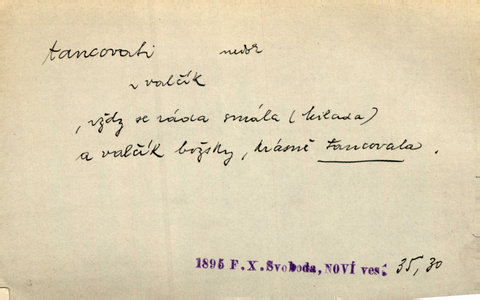 tancovati nedok
v valčík
, vždy se ráda smála (Milada)
a valčík božsky, krásně tancovala.
1895 F. X. Svoboda, NOVÍ ves. 35, 30